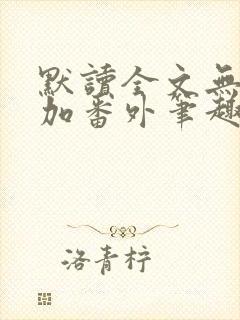 默讀全文無
加番外筆趣
洛青柠